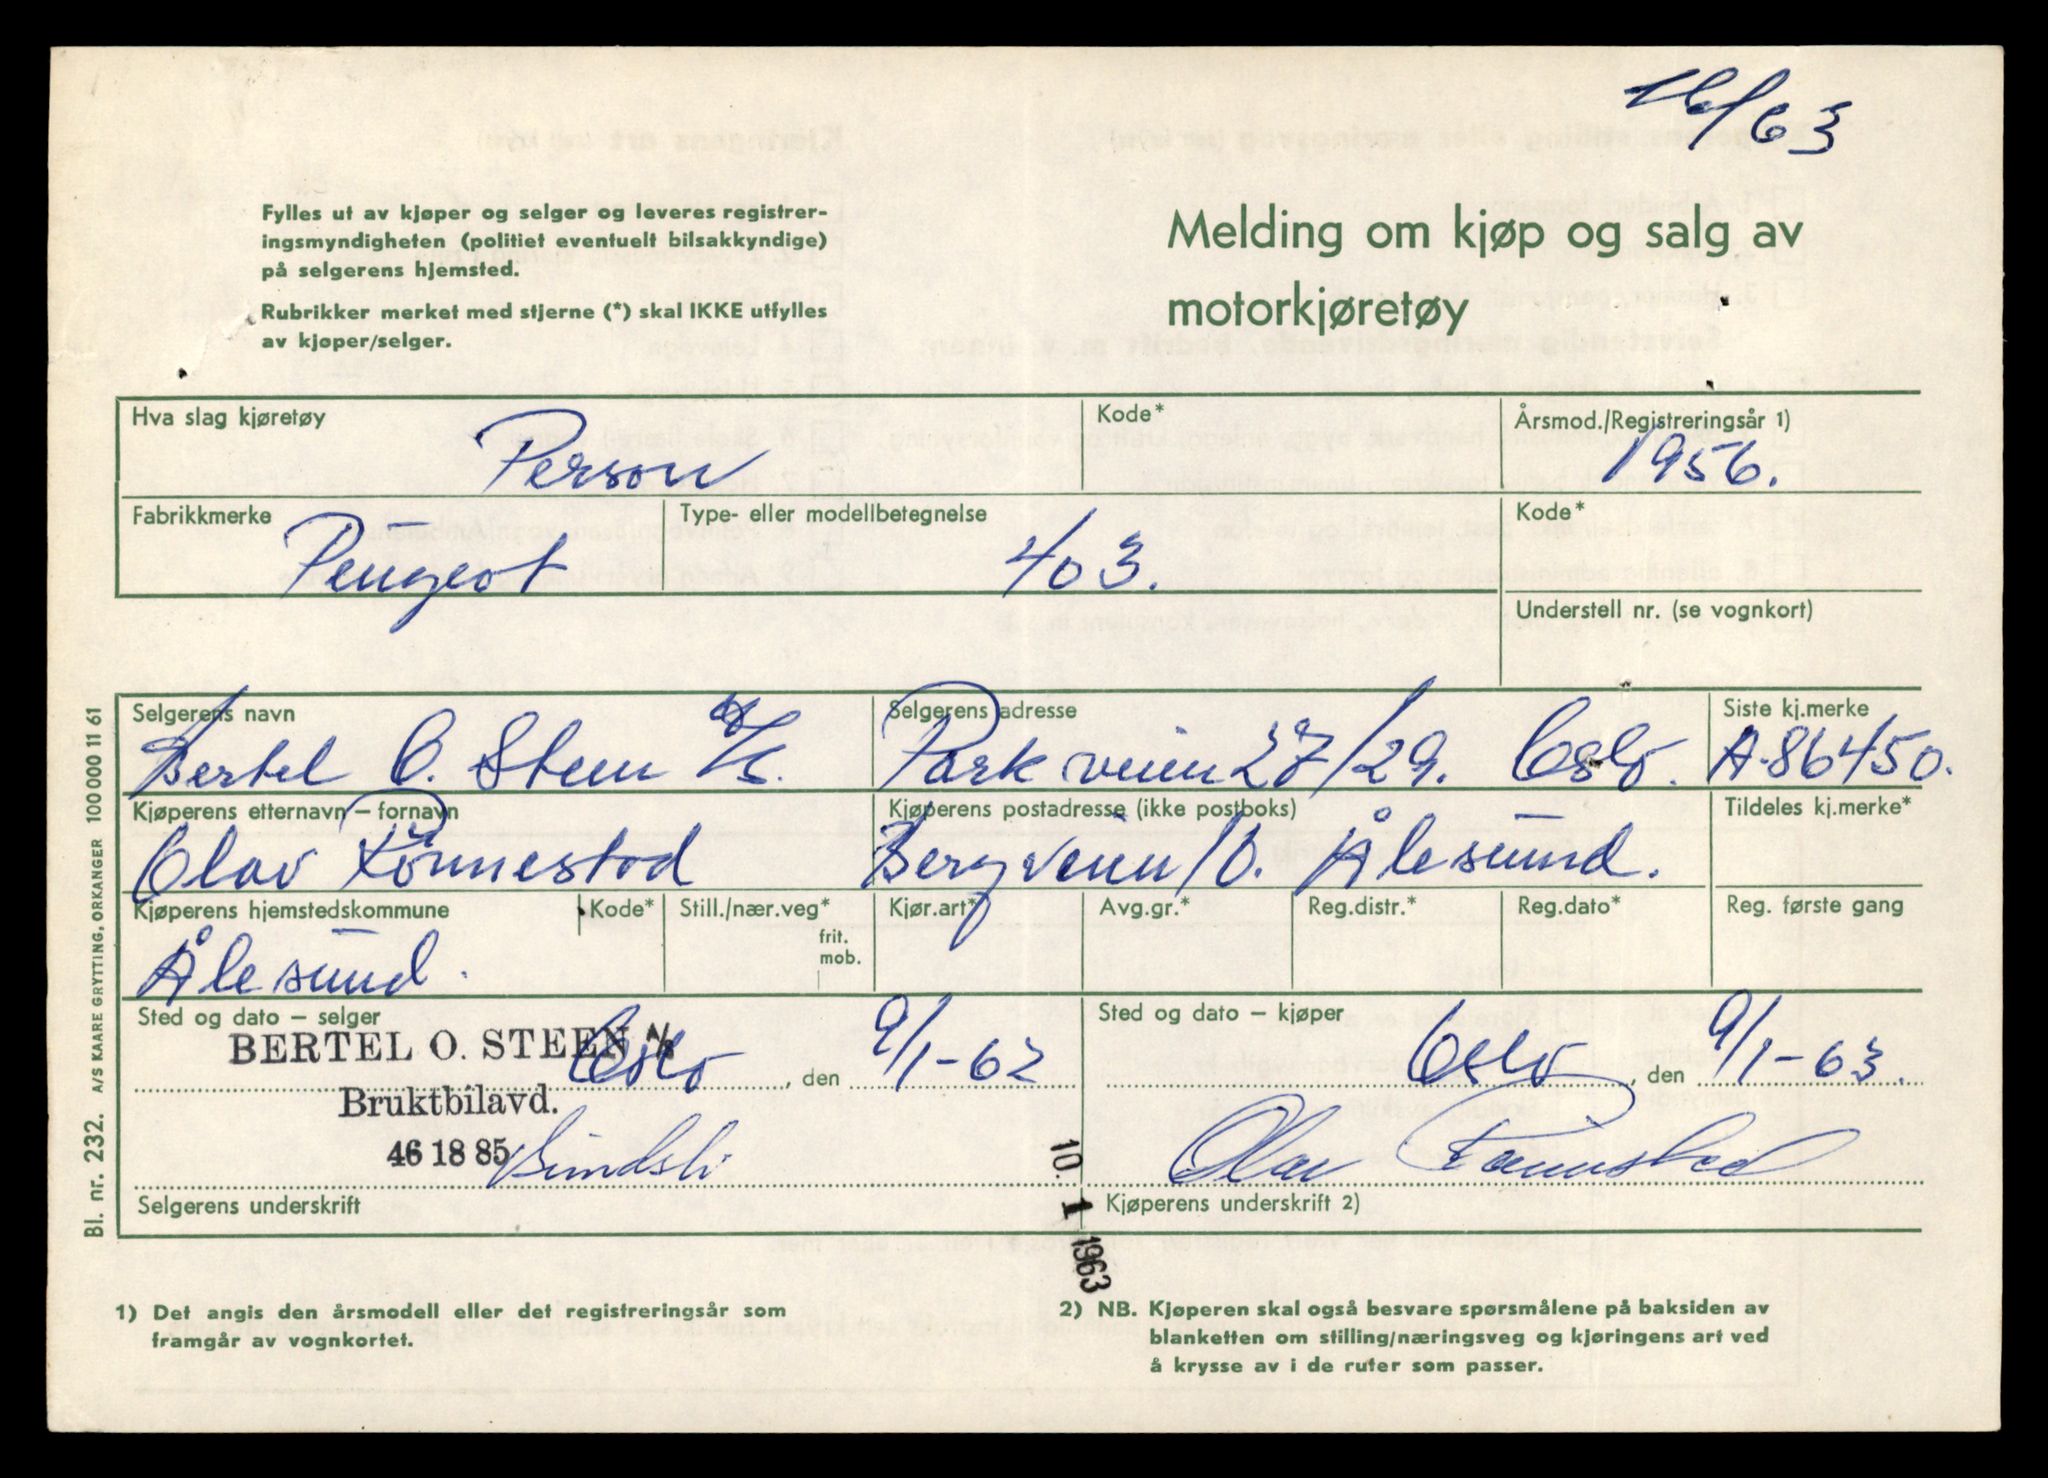 16/63
Fylles ut av kjøper og selger og leveres registrer-
ingsmyndigheten (politiet eventuelt bilsakkyndige)
på selgerens hjemsted.
Rubrikker merket med stjerne (*) skal IKKE utfylles
av kjøper/selger.
Melding om kjøp og salg av
motorkjøretøy
Hva slag kjøretøy
Person
Kode*
Årsmod./Registreringsår 1)
1956.
Fabrikkmerke
Peugeot
Type- eller modellbetegnelse
403.
Kode*
Understell nr. (se vognkort)
Selgerens navn
Bertel O. Steen A/S.
Selgerens adresse
Parkveien 27/29. Oslo.
Siste kj.merke
A-86450.
Kjøperens etternavn – fornavn
Olav Rønnestad
Kjøperens postadresse (ikke postboks)
Bergveien 10. Ålesund.
Tildeles kj.merke*
Kjøperens hjemstedskommune
Ålesund.
Kode*
Still./nær.veg*
frit.
mob.
Kjør.art*
Avg.gr.*
Reg.distr.*
Reg.dato*
Reg. første gang
Sted og dato – selger
BERTEL O. STEEN A/S
Oslo, den 9/1-62
Bruktbilavd.
46 18 85
Selgerens underskrift
Sted og dato – kjøper
Oslo, den 9/1-63.
Olav Rønnestad
Kjøperens underskrift 2)
10. 1 1963
1) Det angis den årsmodell eller det registreringsår som
framgår av vognkortet.
2) NB. Kjøperen skal også besvare spørsmålene på baksiden av
blanketten om stilling/næringsveg og kjøringens art ved
å krysse av i de ruter som passer.
Bl. nr. 232. A/S KAARE GRYTTING, ORKANGER 100 000 11 61